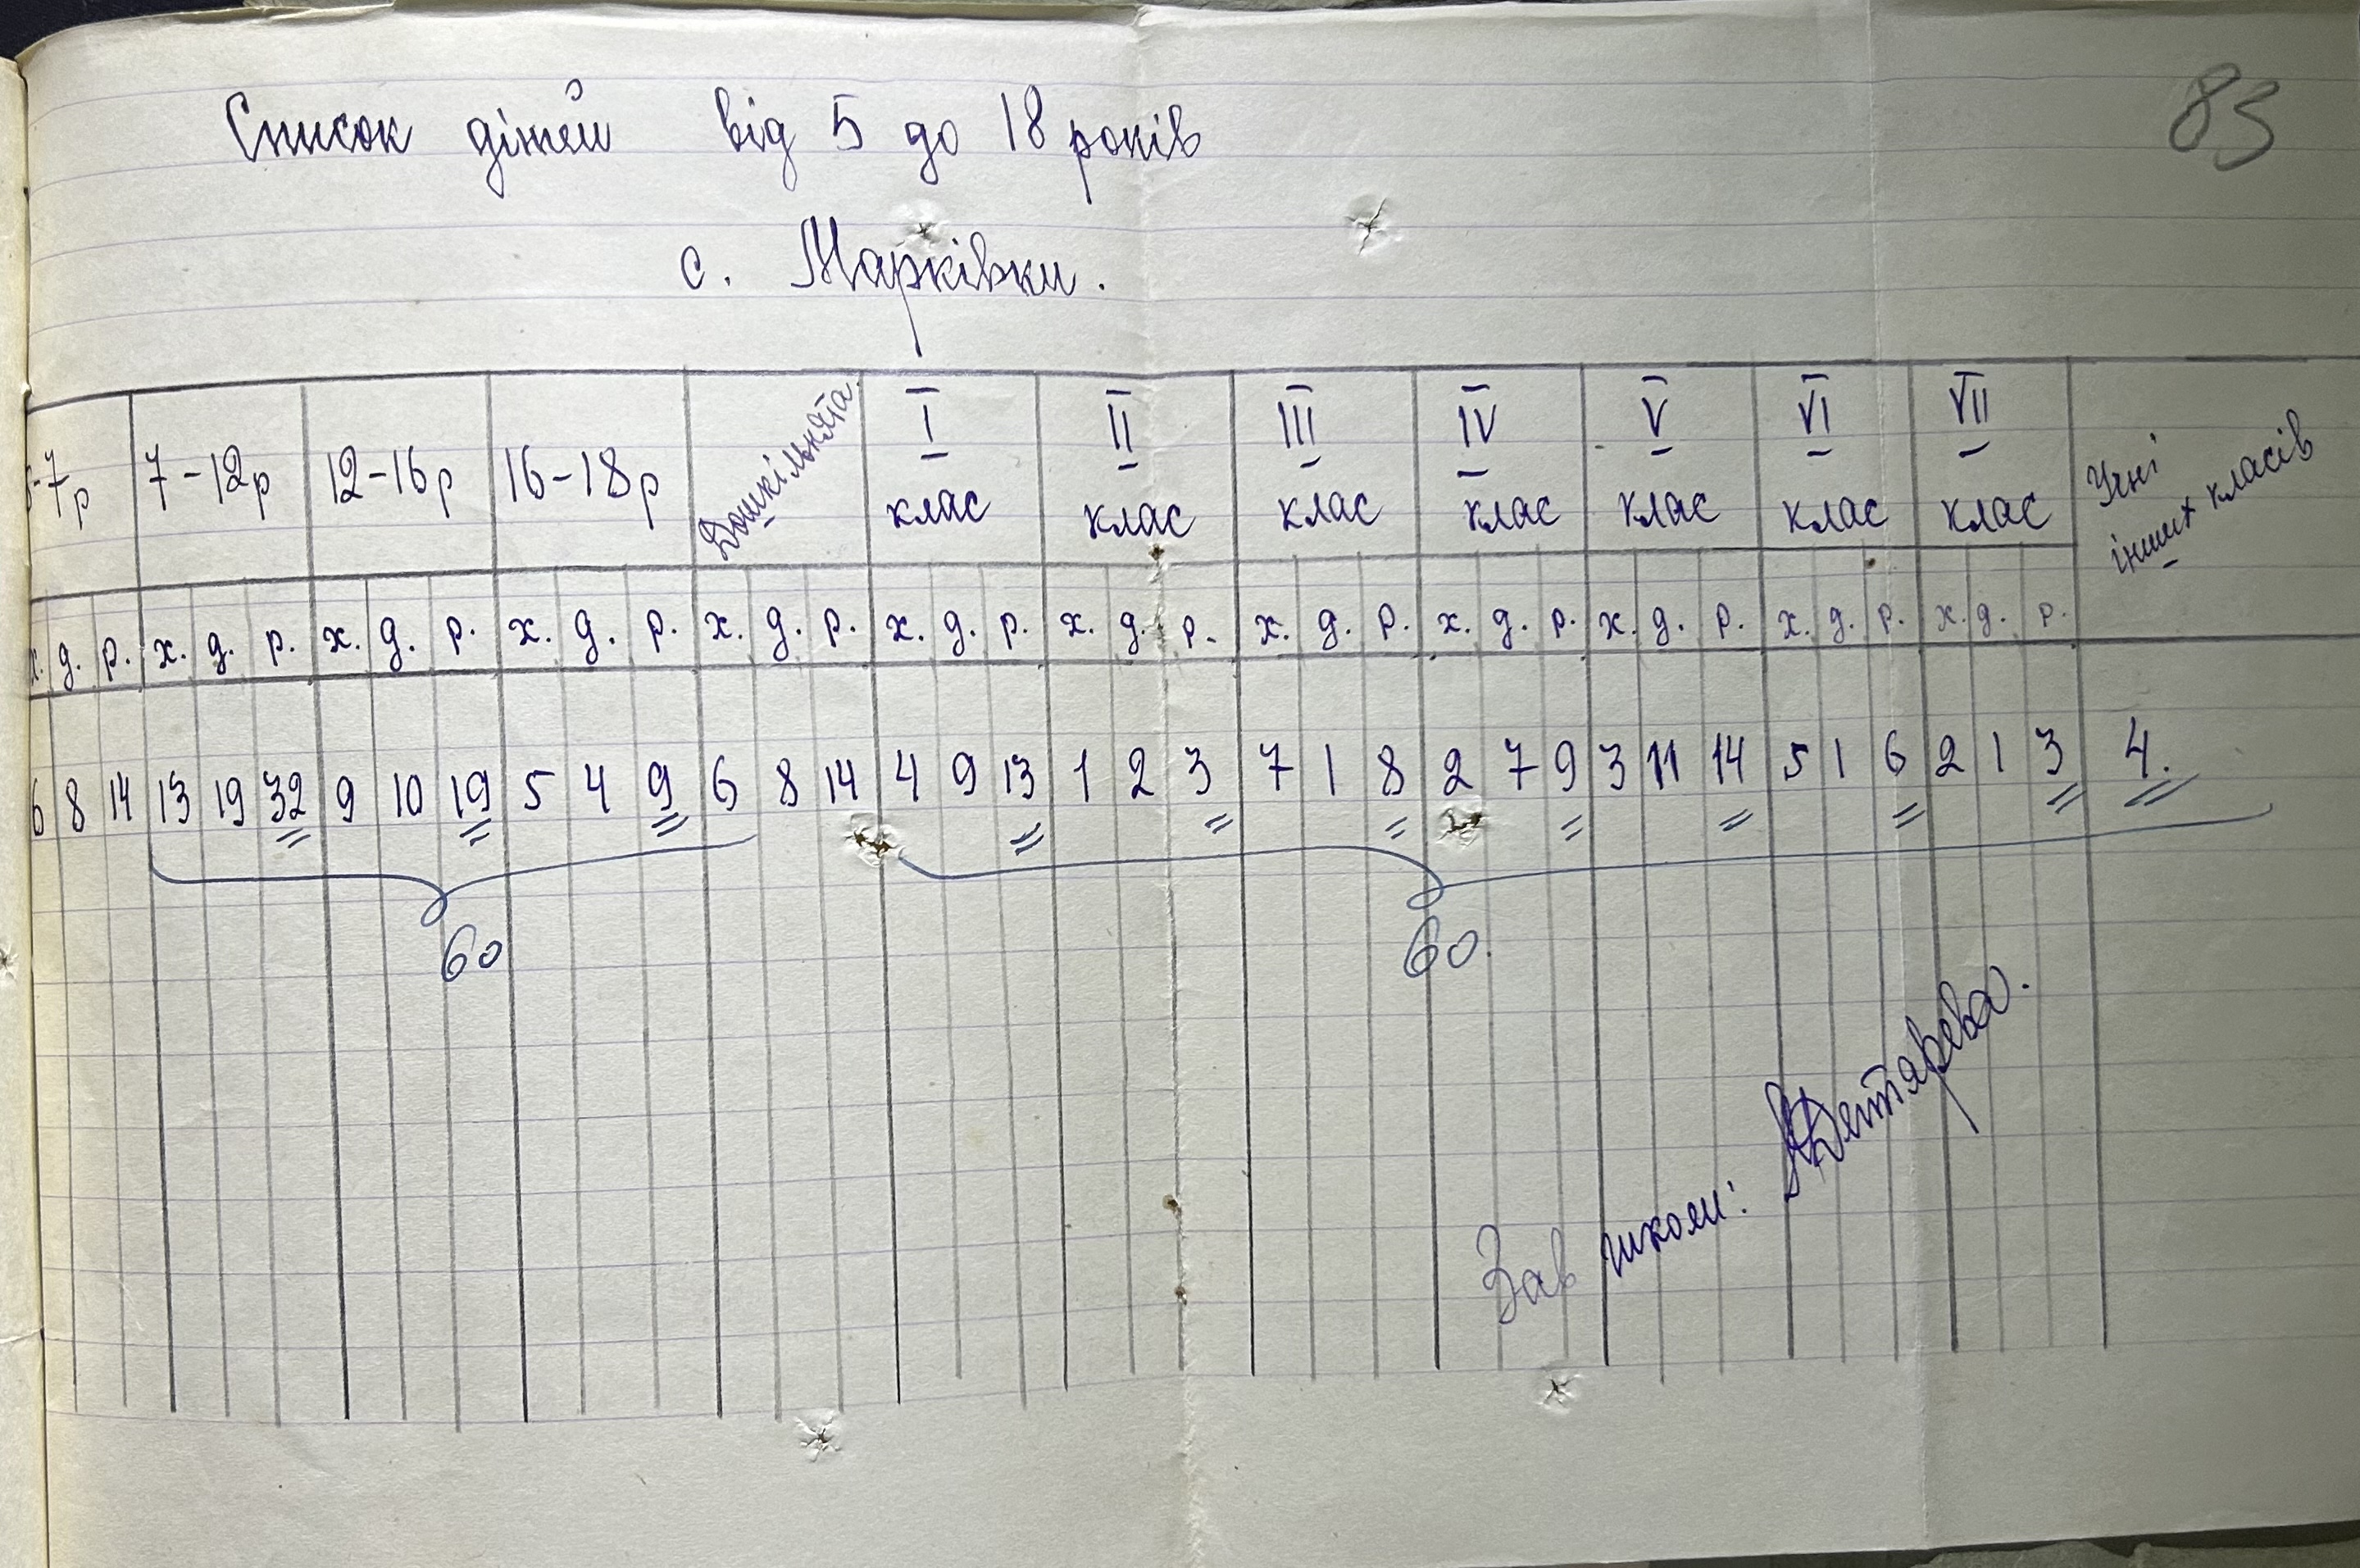 83
Список дітей від 5 до 18 років
с. Марківки.
-7р 7-12р 12-16р 16-18р Дошкільнята I клас II клас III клас IV клас V клас VI клас VII клас Учні інших класів
х. д. р. х. д. р. х. д. р. х. д. р. х. д. р. х. д. р. х. д. р. х. д. р. х. д. р. х. д. р. х. д. р. х. д. р.
6 8 14 13 19 32 9 10 19 5 4 9 6 8 14 4 9 13 1 2 3 7 1 8 2 7 9 3 11 14 5 1 6 2 1 3 4.
60 60.
Зав школи: